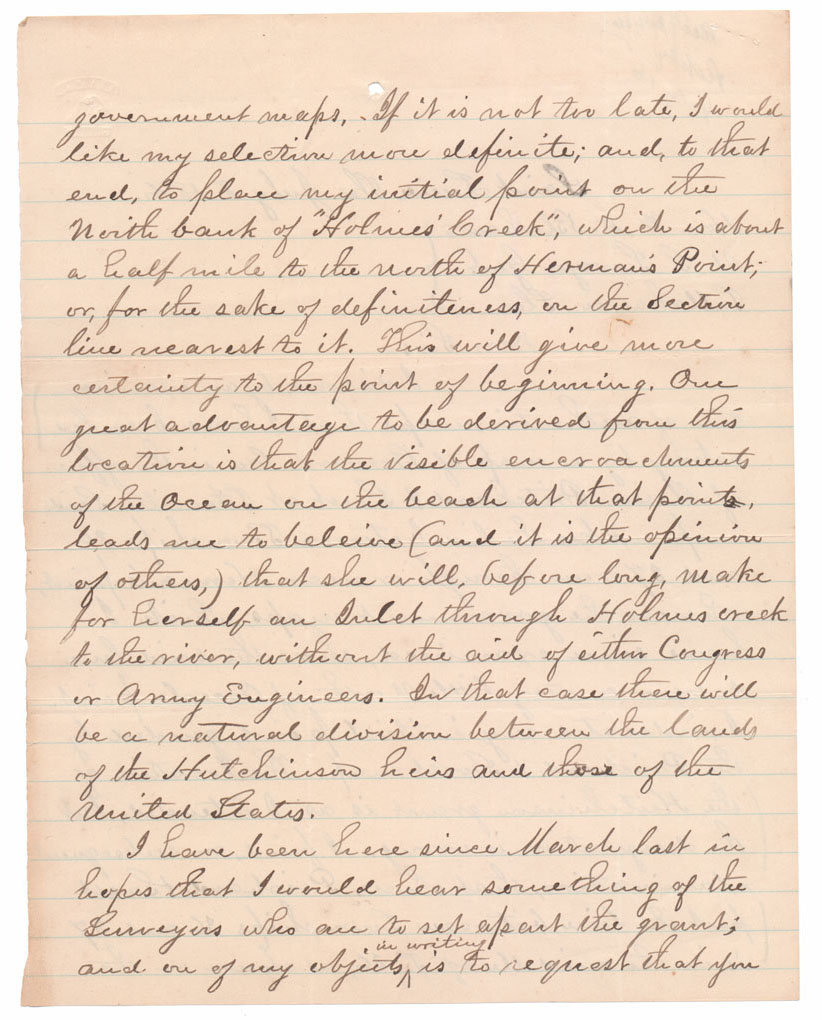 government maps. If it is not too late, I would
like my selection more definite; and, to that
end, to place my initial point on the
North bank of "Holmes' Creek", which is about
a half mile to the north of Herman's Point;
or, for the sake of definiteness, on the Section
line nearest to it. This will give more
certainty to the point of beginning. One
great advantage to be derived from this
location is that the visible encroachments
of the Ocean on the beach at that point,
leads me to beleive (and it is the opinion
of others,) that she will, before long, make
for herself an Inlet through Holmes creek
to the river, without the aid of either Congress
or Army Engineers. In that case there will
be a natural division between the lands
of the Hutchinson heirs and those of the
United States.
I have been here since March last in
hopes that I would hear something of the
Surveyors who are to set apart the grant;
in writing
and on of my objects, is to request that you